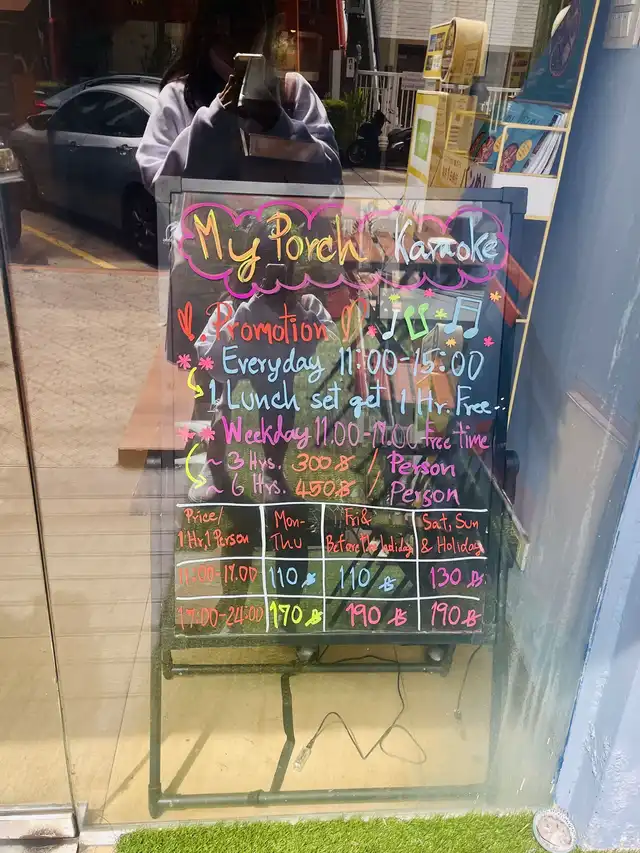 My Porch Karaoke
Promotion
Everyday 11:00-15:00
1 Lunch set get 1 Hr. Free
Weekday 11.00-17.00 Free time
~ 3 Hrs. 300฿ / Person
~ 6 Hrs. 450฿ / Person
Price/ 1 Hr, 1 Person | Mon-Thu | Fri & Before the holiday | Sat, Sun & Holiday
11:00-17.00 | 110 ฿ | 110 ฿ | 130 ฿
17:00-24:00 | 170 ฿ | 190 ฿ | 190 ฿